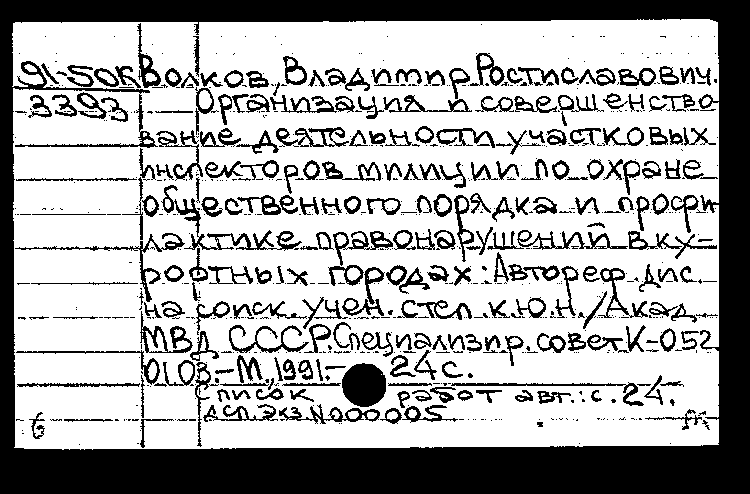 91-50к Волков, Владимир Ростиславович.
3393 Организация и совершенство-
вание деятельности участковых
инспекторов милиции по охране
общественного порядка и профи-
лактике правонарушений в ку-
рортных городах: Автореф. дис.
на соиск. учен. степ. к.ю.н. / Акад.
МВД СССР. Специализир. совет К-052.
01.03. - М., 1991. - 24 с.
Список работ авт.: с. 24.
ДСП. Экз. N 000005
б